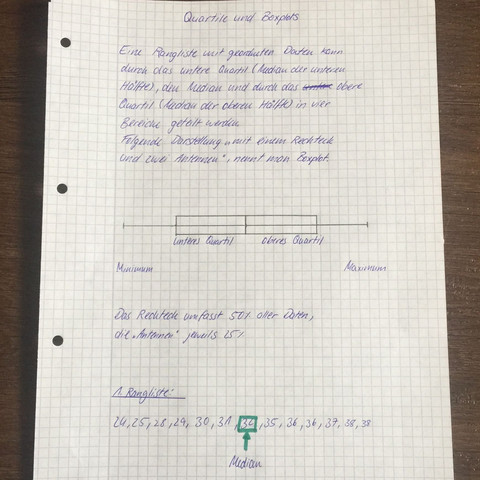 Quartile und Boxplots
Eine Rangliste mit geordneten Daten kann
durch das untere Quartil (Median der unteren
Hälfte), den Median und durch das obere
Quartil (Median der oberen Hälfte) in vier
Bereiche geteilt werden
Folgende Darstellung „mit einem Rechteck
und zwei Antennen", nennt man Boxplot.
unteres Quartil oberes Quartil
Minimum Maximum
Das Rechteck umfasst 50% aller Daten,
die „Antennen" jeweils 25%
1. Rangliste:
24, 25, 28, 29, 30, 31, 32, 35, 36, 36, 37, 38, 38
Median